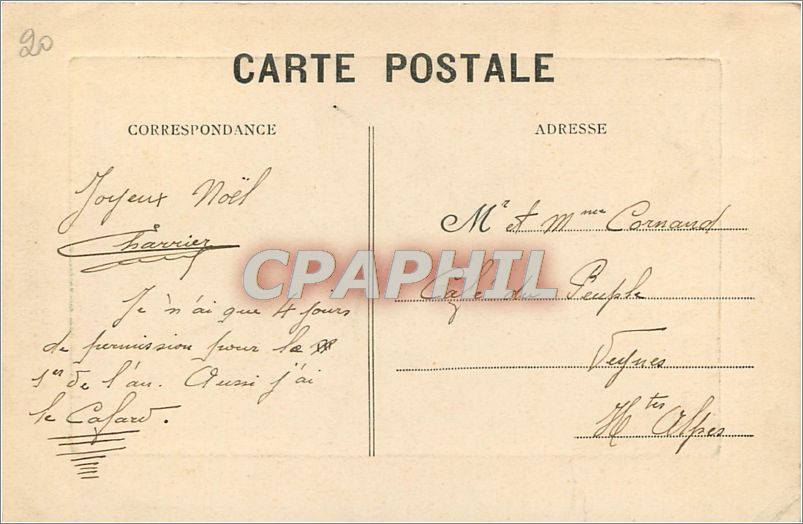 20
CARTE POSTALE
CORRESPONDANCE
ADRESSE
Joyeux Noël
Charrier
Je n'ai que 4 jours
de permission pour le
1er de l'an. Aussi j'ai
le Cafard.
Mr et Mme Cornand
Café du Peuple
Veynes
Htes Alpes
CPAPHIL